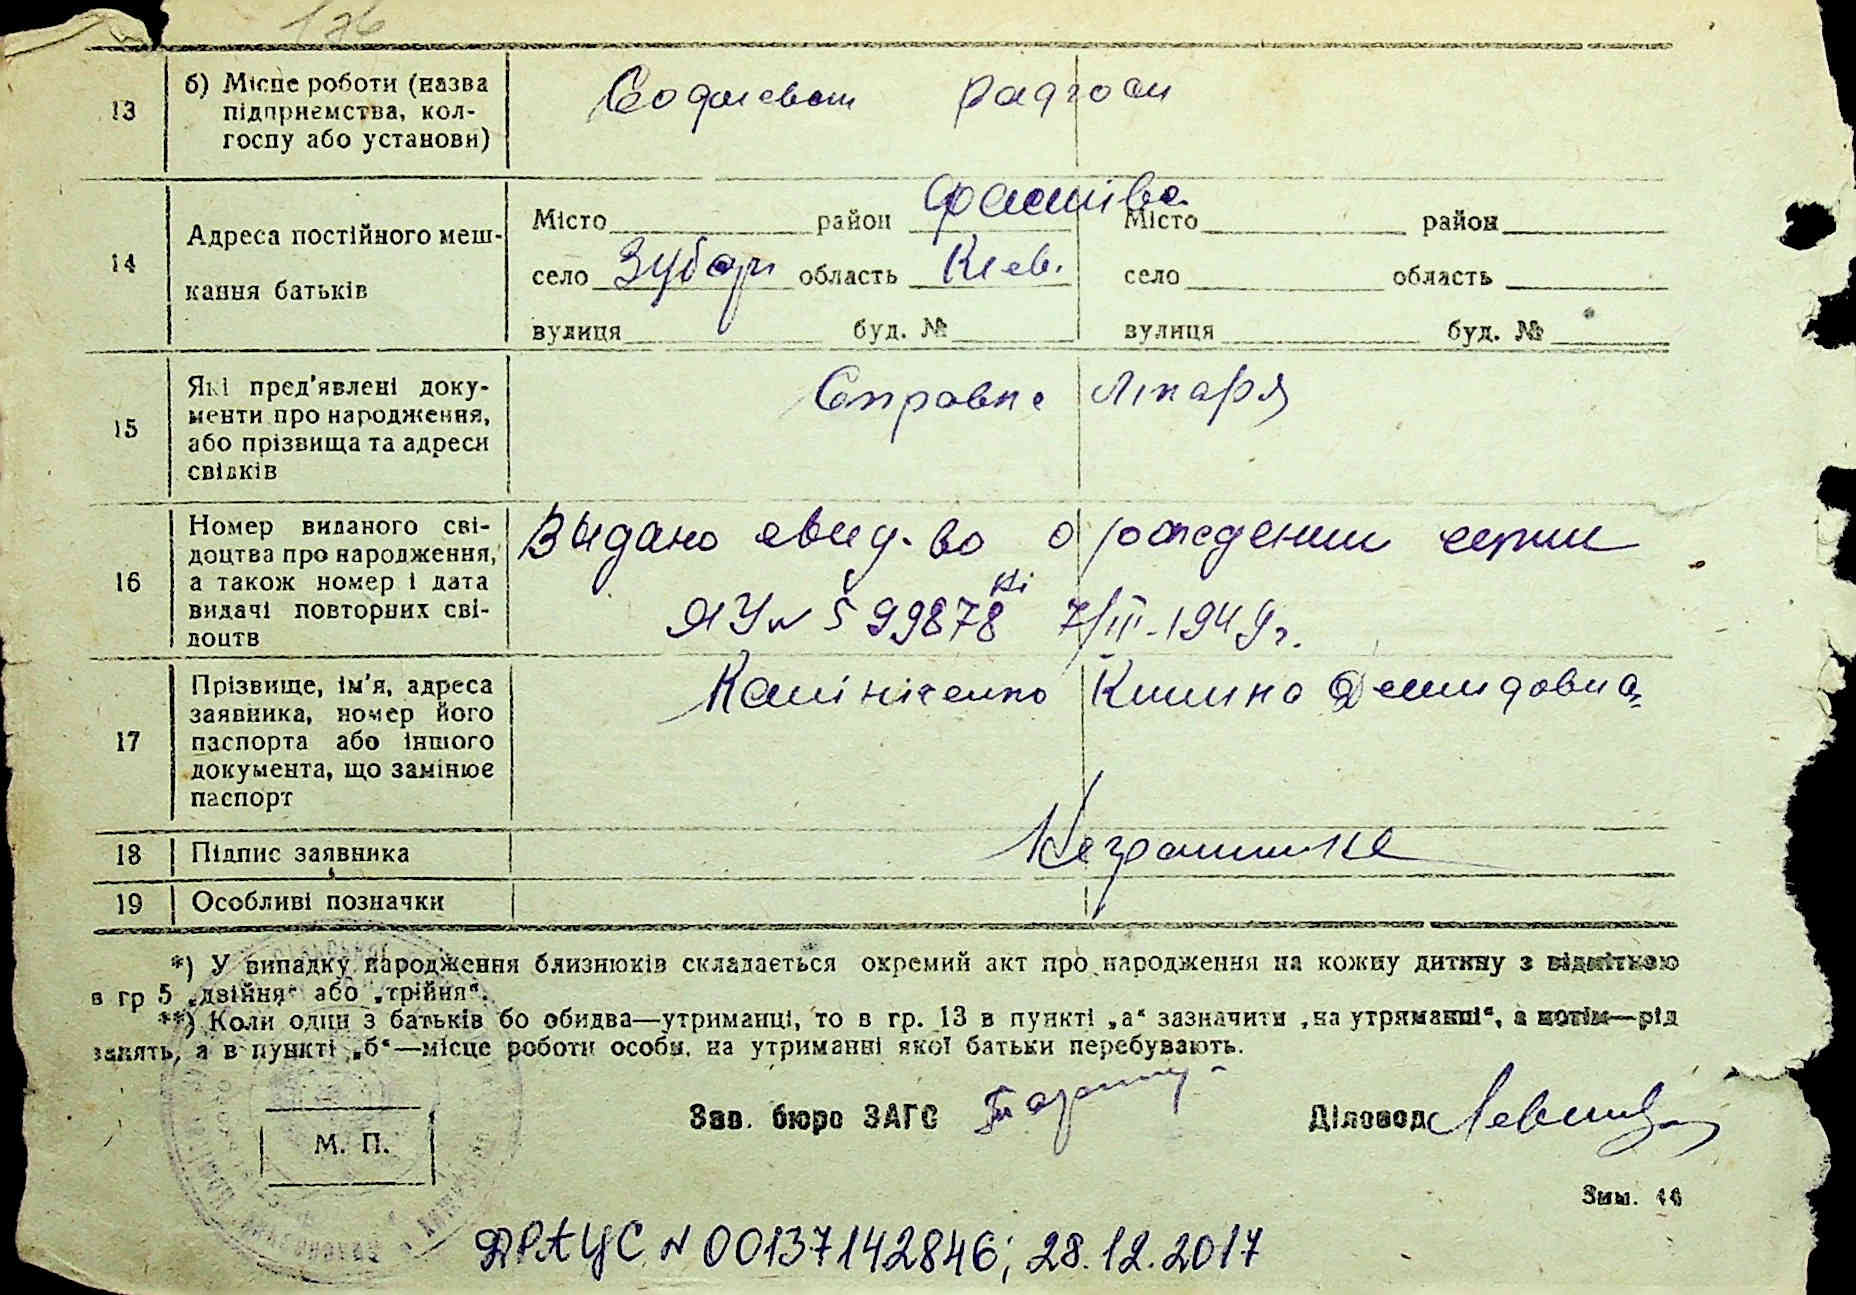 176
13
б) Місце роботи (назва
підприємства, кол-
госпу або установи)
радгосп
14
Адреса постійного меш-
кання батьків
Місто район Фастівс. Місто район
село Зубарі область Київ. село область
вулиця буд. № вулиця буд. №
15
Які пред'явлені доку-
менти про народження,
або прізвища та адреси
свідків
Справка лікаря
16
Номер виданого сві-
доцтва про народження,
а також номер і дата
видачі повторних сві-
доцтв
Выдано свид-во о рождении серии
ЯУ № 599878 7/III-1949 г.
17
Прізвище, ім'я, адреса
заявника, номер його
паспорта або іншого
документа, що замінює
паспорт
Демидовна
18
Підпис заявника
19
Особливі позначки
*) У випадку народження близнюків складається окремий акт про народження на кожну дитину з відміткою
в гр 5 „двійня" або „трійня".
**) Коли один з батьків бо обидва—утриманці, то в гр. 13 в пункті „а" зазначити „на утриманні", а потім—рід
занять, а в пункті „б"—місце роботи особи, на утриманні якої батьки перебувають.
Зав. бюро ЗАГС
Діловод
М. П.
Зим. 46
ДРАЦС № 00137142846; 28.12.2017